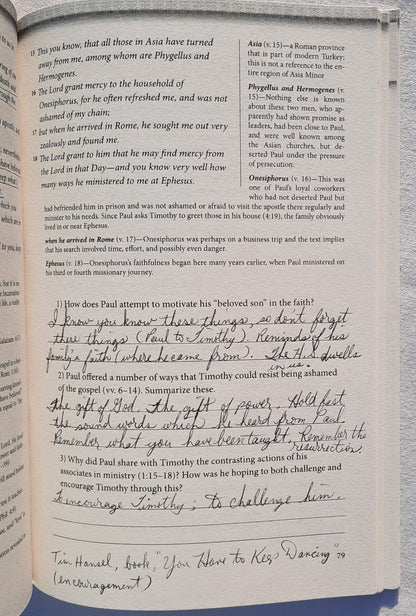 15 This you know, that all those in Asia have turned
away from me, among whom are Phygellus and
Hermogenes.
16 The Lord grant mercy to the household of
Onesiphorus, for he often refreshed me, and was not
ashamed of my chain;
17 but when he arrived in Rome, he sought me out very
zealously and found me.
18 The Lord grant to him that he may find mercy from
the Lord in that Day—and you know very well how
many ways he ministered to me at Ephesus.
Asia (v. 15)—a Roman province
that is part of modern Turkey;
this is not a reference to the en-
tire region of Asia Minor
Phygellus and Hermogenes (v.
15)—Nothing else is known
about these two men, who ap-
parently had shown promise as
leaders, had been close to Paul,
and were well known among
the Asian churches, but de-
serted Paul under the pressure
of persecution.
Onesiphorus (v. 16)—This was
one of Paul's loyal coworkers
who had not deserted Paul but
had befriended him in prison and was not ashamed or afraid to visit the apostle there regularly and
minister to his needs. Since Paul asks Timothy to greet those in his house (4:19), the family obviously
lived in or near Ephesus.
when he arrived in Rome (v. 17)—Onesiphorus was perhaps on a business trip and the text implies
that his search involved time, effort, and possibly even danger.
Ephesus (v. 18)—Onesiphorus's faithfulness began here many years earlier, when Paul ministered on
his third or fourth missionary journey.
1) How does Paul attempt to motivate his "beloved son" in the faith?
I know you know these things, so dont forget
these things (Paul to Timothy) Reminds of his
family's faith (where he came from). The H.S. dwells
in us.
2) Paul offered a number of ways that Timothy could resist being ashamed
of the gospel (vv. 6–14). Summarize these.
The gift of God. The gift of power. Hold fast
the sound words which he heard from Paul.
Remember what you have been taught. Remember the
resurrection.
3) Why did Paul share with Timothy the contrasting actions of his
associates in ministry (1:15–18)? How was he hoping to both challenge and
encourage Timothy through this?
To encourage Timothy; to challenge him.
Tim Hansel, book, "You Have to Keep Dancing"
(encouragement)
79